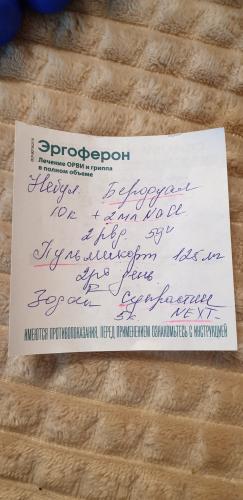 Эргоферон
Лечение ОРВИ и гриппа
в полном объеме
Небул. Беродуал
10к + 2мл NaCl
2 рвд 5дн
Пульмикорт 125мг
2рв день
Зодак Супрастин
5к NEXT
ИМЕЮТСЯ ПРОТИВОПОКАЗАНИЯ. ПЕРЕД ПРИМЕНЕНИЕМ ОЗНАКОМЬТЕСЬ С ИНСТРУКЦИЕЙ